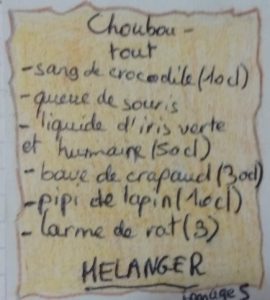 Choubou-
tout
-sang de crocodile (10cl)
-queue de souris
-liquide d'iris verte
et humaine (50cl)
-bave de crapaud (30cl)
-pipi de lapin (10cl)
-larme de rat (3)
MELANGER